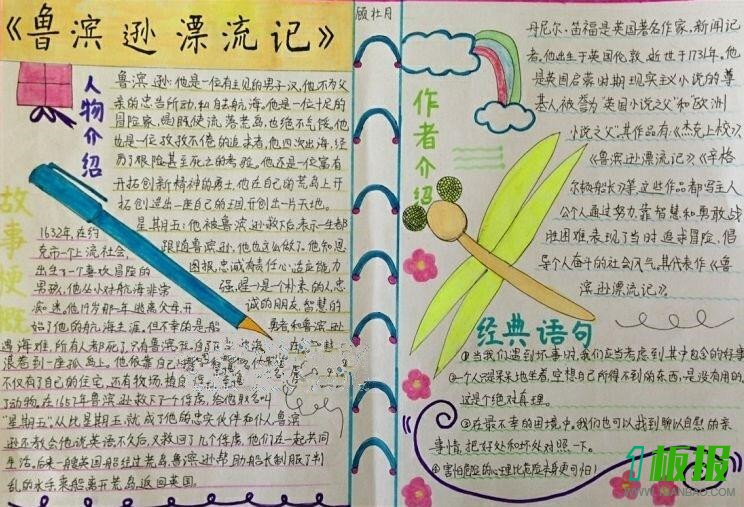 《鲁滨逊漂流记》
顾壮月
人物介绍
鲁滨逊:他是一位有主见的男子汉,他不为父
亲的忠告所动,私自去航海。他是一位十足的
冒险家,即使流落荒岛,也绝不气馁。他
也是一位孜孜不倦的追求者,他四次出海,经
历了艰险甚至死亡的考验。他还是一位富有
开拓创新精神的勇士,他在自己的荒岛上开
拓创造出一座自己的王国开创出一片天地。
星期五:他被鲁滨逊救下后表示一生都
跟随鲁滨逊,他也这么做了。他知恩
图报,忠诚有责任心适应能力
强,是一个朴素的人,忠
诚的朋友,智慧的
勇者和鲁滨逊
故事梗概
1632年,在约
克市一个上流社会,
出生了一个喜欢冒险的
男孩,他从小对航海非常
着迷。他19岁那一年,逃离父母,开
始了他的航海生涯,但不幸的是,船
遇海难,所有人都死了,只有鲁滨逊
浪卷到一座孤岛上。他依靠自己
不仅有了自己的住宅,还有牧场,
了动物。在1657年鲁滨逊救下了一个俘虏,给他取名叫
“星期五”,从此星期五,就成了他的忠实伙伴和仆人,鲁滨
逊还教会他说英语不久后又救回了几个俘虏,他们在一起共同
生活。后来一艘英国船经过荒岛,鲁滨逊帮助船长制服了叛
乱的水手乘船离开荒岛,返回英国。
作者介绍
丹尼尔·笛福是英国著名作家,新闻记
者。他出生于英国伦敦,逝世于1731年。他
是英国启蒙时期现实主义小说的尊
基人,被誉为“英国小说之父”和“欧洲
小说之父”,其作品有《杰克上校》、
《鲁滨逊漂流记》《辛格
尔顿船长》等,这些作品都写主人
公个人通过努力,靠智慧和勇敢战
胜困难表现了当时追求冒险,倡
导个人奋斗的社会风气。其代表作《鲁
滨逊漂流记》。
经典语句
①当我们遇到坏事时,我们应当考虑到其中包含的好事
②一个人只是呆呆地坐着,空想自己所得不到的东西,是没有用的,
这是个绝对真理。
③在最不幸的困境中,我们也可以找到聊以自慰的亲
事情,把好处和坏处对照一下。
④害怕危险的心理比危险本身更可怕!
1板报
WWW.1KANBAO.COM